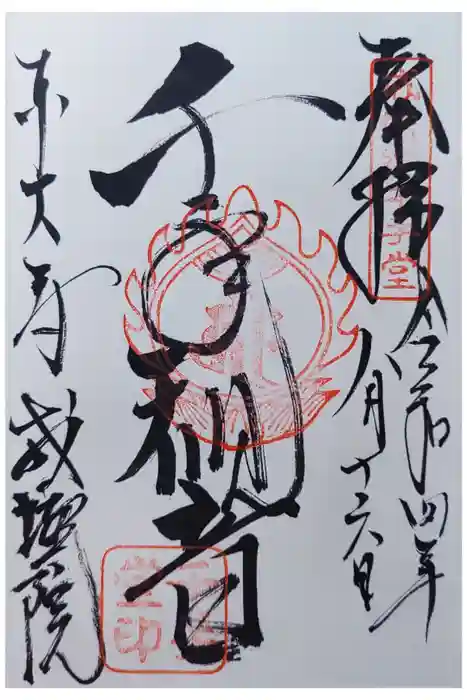 奉拝
令和四年
八月十六日
千手観音
東大寺
戒壇院